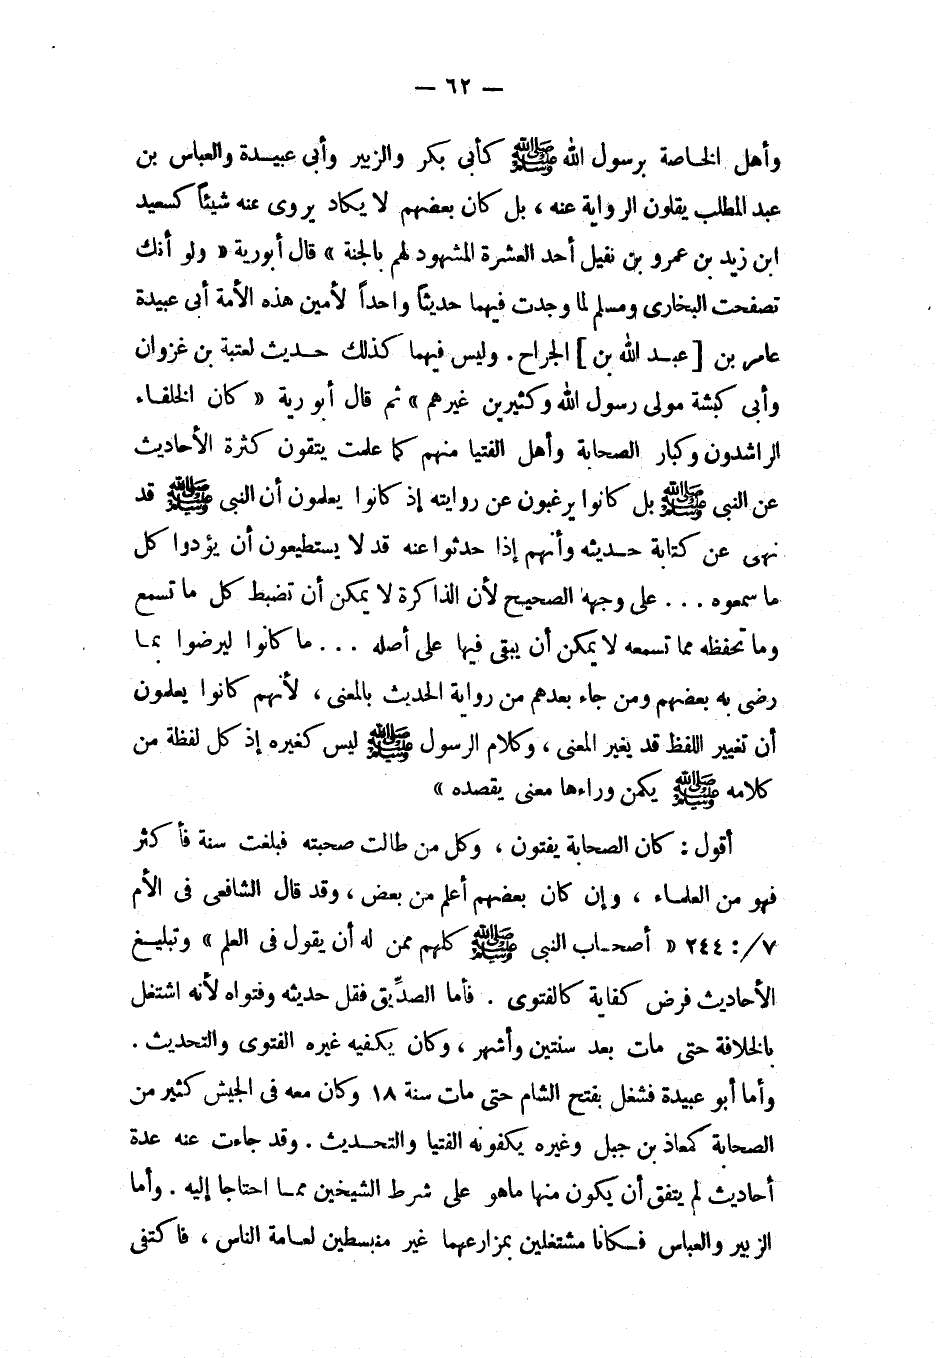 — ٦٢ —
وأهل الخاصة برسول الله ﷺ كأبى بكر والزبير وأبى عبيدة والعباس بن
عبد المطلب يقلون الرواية عنه ، بل كان بعضهم لا يكاد يروى عنه شيئاً كسعيد
ابن زيد بن عمرو بن نفيل أحد العشرة المشهود لهم بالجنة » قال أبورية « ولو أنك
تصفحت البخارى ومسلم لما وجدت فيهما حديثاً واحداً لأمين هذه الأمة أبى عبيدة
عامر بن [ عبد الله بن ] الجراح . وليس فيهما كذلك حديث لعتبة بن غزوان
وأبى كبشة مولى رسول الله وكثيرين غيرهم » ثم قال أبو رية « كان الخلفاء
الراشدون وكبار الصحابة وأهل الفتيا منهم كما علمت يتقون كثرة الأحاديث
عن النبى ﷺ بل كانوا يرغبون عن روايته إذ كانوا يعلمون أن النبى ﷺ قد
نهى عن كتابة حديثه وأنهم إذا حدثوا عنه قد لا يستطيعون أن يؤدوا كل
ما سمعوه . . . على وجهه الصحيح لأن الذاكرة لا يمكن أن تضبط كل ما تسمع
وما تحفظه مما تسمعه لا يمكن أن يبقى فيها على أصله . . . ما كانوا ليرضوا بما
رضى به بعضهم ومن جاء بعدهم من رواية الحديث بالمعنى ، لأنهم كانوا يعلمون
أن تغيير اللفظ قد يغير المعنى ، وكلام الرسول ﷺ ليس كغيره إذ كل لفظة من
كلامه ﷺ يكمن وراءها معنى يقصده »
أقول : كان الصحابة يفتون ، وكل من طالت صحبته فبلغت سنة فأكثر
فهو من العلماء ، وإن كان بعضهم أعلم من بعض ، وقد قال الشافعى فى الأم
٧/: ٢٤٤ « أصحاب النبى ﷺ كلهم ممن له أن يقول فى العلم » وتبليغ
الأحاديث فرض كفاية كالفتوى . فأما الصدِّيق فقل حديثه وفتواه لأنه اشتغل
بالخلافة حتى مات بعد سنتين وأشهر ، وكان يكفيه غيره الفتوى والتحديث .
وأما أبو عبيدة فشغل بفتح الشام حتى مات سنة ١٨ وكان معه فى الجيش كثير من
الصحابة كمعاذ بن جبل وغيره يكفونه الفتيا والتحديث . وقد جاءت عنه عدة
أحاديث لم يتفق أن يكون منها ماهو على شرط الشيخين مما احتاجا إليه . وأما
الزبير والعباس فكانا مشتغلين بمزارعهما غير منبسطين لعامة الناس ، فاكتفى